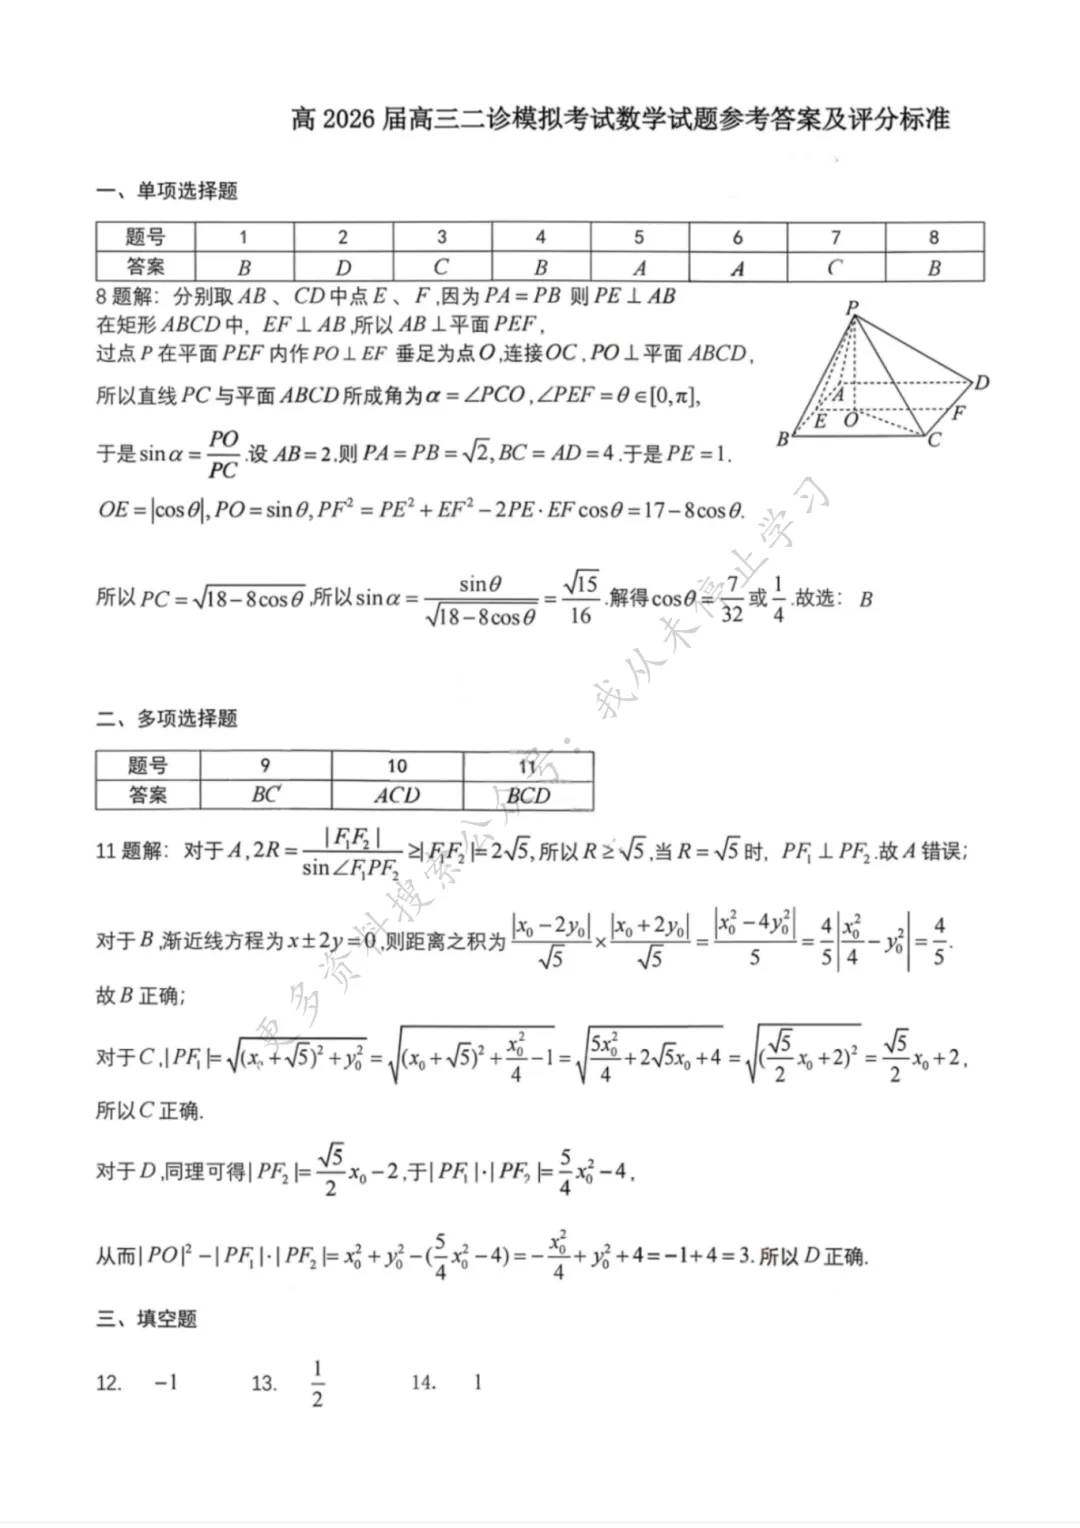 高 2026 届高三二诊模拟考试数学试题参考答案及评分标准
一、单项选择题
题号 1 2 3 4 5 6 7 8
答案 B D C B A A C B
8 题解：分别取 AB 、CD 中点 E 、F ,因为 PA = PB 则 PE ⊥ AB
在矩形 ABCD 中, EF ⊥ AB ,所以 AB ⊥平面 PEF ,
过点 P 在平面 PEF 内作 PO ⊥ EF 垂足为点 O ,连接 OC , PO ⊥平面 ABCD ,
所以直线 PC 与平面 ABCD 所成角为 α = ∠PCO , ∠PEF = θ ∈ [0, π],
于是 sin α = PO/PC .设 AB = 2 .则 PA = PB = √2, BC = AD = 4 .于是 PE = 1 .
OE = |cos θ|, PO = sin θ, PF² = PE² + EF² − 2PE · EF cos θ = 17 − 8cos θ.
所以 PC = √(18 − 8cos θ) ,所以 sin α = sin θ/√(18 − 8cos θ) = √15/16 .解得 cos θ = 7/32 或 1/4 .故选： B
P
A
D
E
O
F
B
C
二、多项选择题
题号 9 10 11
答案 BC ACD BCD
11 题解：对于 A , 2R = |F₁F₂|/sin∠F₁PF₂ ≥ |F₁F₂| = 2√5, 所以 R ≥ √5 ,当 R = √5 时, PF₁ ⊥ PF₂ .故 A 错误；
对于 B ,渐近线方程为 x ± 2y = 0 ,则距离之积为 |x₀ − 2y₀|/√5 × |x₀ + 2y₀|/√5 = |x₀² − 4y₀²|/5 = 4/5|x₀²/4 − y₀²| = 4/5.
故 B 正确；
对于 C ,| PF₁ |= √((x₀ + √5)² + y₀²) = √((x₀ + √5)² + x₀²/4 − 1) = √(5x₀²/4 + 2√5x₀ + 4) = √((√5/2 x₀ + 2)²) = √5/2 x₀ + 2 ,
所以 C 正确.
对于 D ,同理可得| PF₂ |= √5/2 x₀ − 2 ,于| PF₁ |·| PF₂ |= 5/4 x₀² − 4 ,
从而| PO |² −| PF₁ |·| PF₂ |= x₀² + y₀² − (5/4 x₀² − 4) = −x₀²/4 + y₀² + 4 = −1 + 4 = 3 . 所以 D 正确.
三、填空题
12. −1 13. 1/2 14. 1
更多资料搜索公众号：我从未停止学习